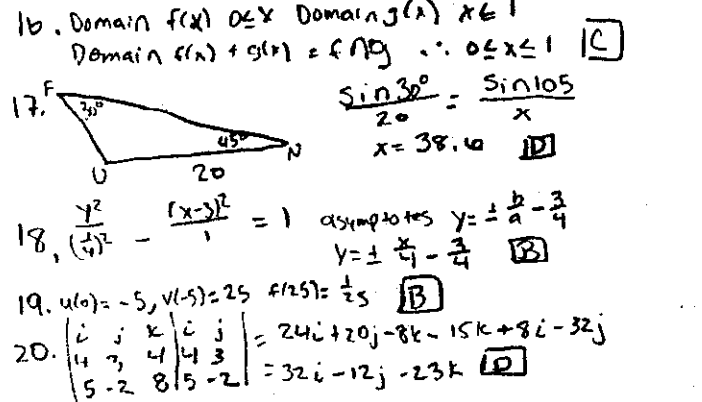 16. Domain f(x) 0≤x Domain g(x) x≤1
Domain f(x) + g(x) = f ∩ g ∴ 0≤x≤1 C
17. F 30° 45° N U 20
sin30°/20 = sin105/x
x = 38.6 D
18. y²/(1/4)² - (x-3)²/1 = 1 asymptotes y = ± b/a - 3/4
y = ± x/4 - 3/4 B
19. u(0) = -5, v(-5) = 25 f(25) = 1/25 B
20. | i j k | i j | = 24i + 20j - 8k - 15k + 8i - 32j
| 4 3 4 | 4 3 |
| 5 -2 8 | 5 -2 | = 32i - 12j - 23k D